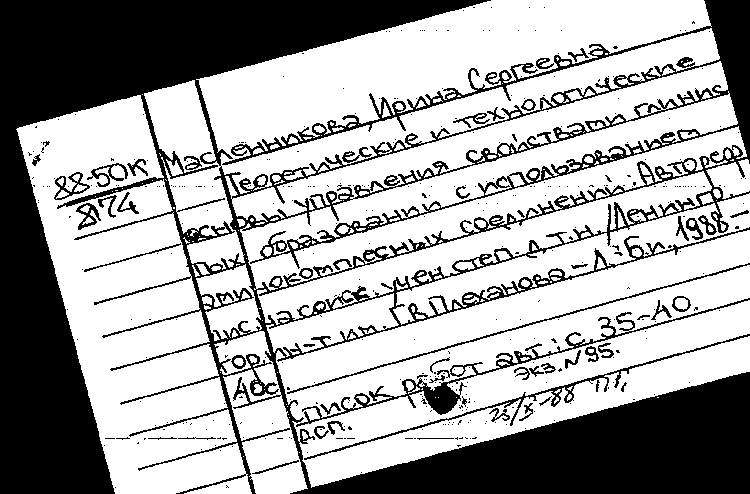 Масленникова, Ирина Сергеевна.
88-50К
8174
Теоретические и технологические
основы управления свойствами глинис
тых образований с использованием
аминокомплесных соединений: Автореф
дис. на соиск. учен. степ. д.т.н. /Ленингр.
гор. ин-т им. Г.В. Плеханова. – Л.: Б.и., 1988. –
40с.
Список работ авт.: с. 35-40.
экз. N 95.
дсп.